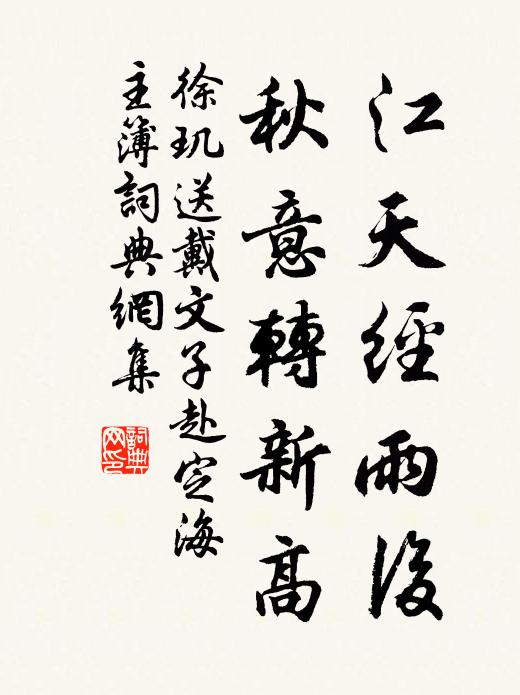 江天經雨後
秋意轉新高
徐玑送戴文子赴定海
主簿詞典網集
詞典网印